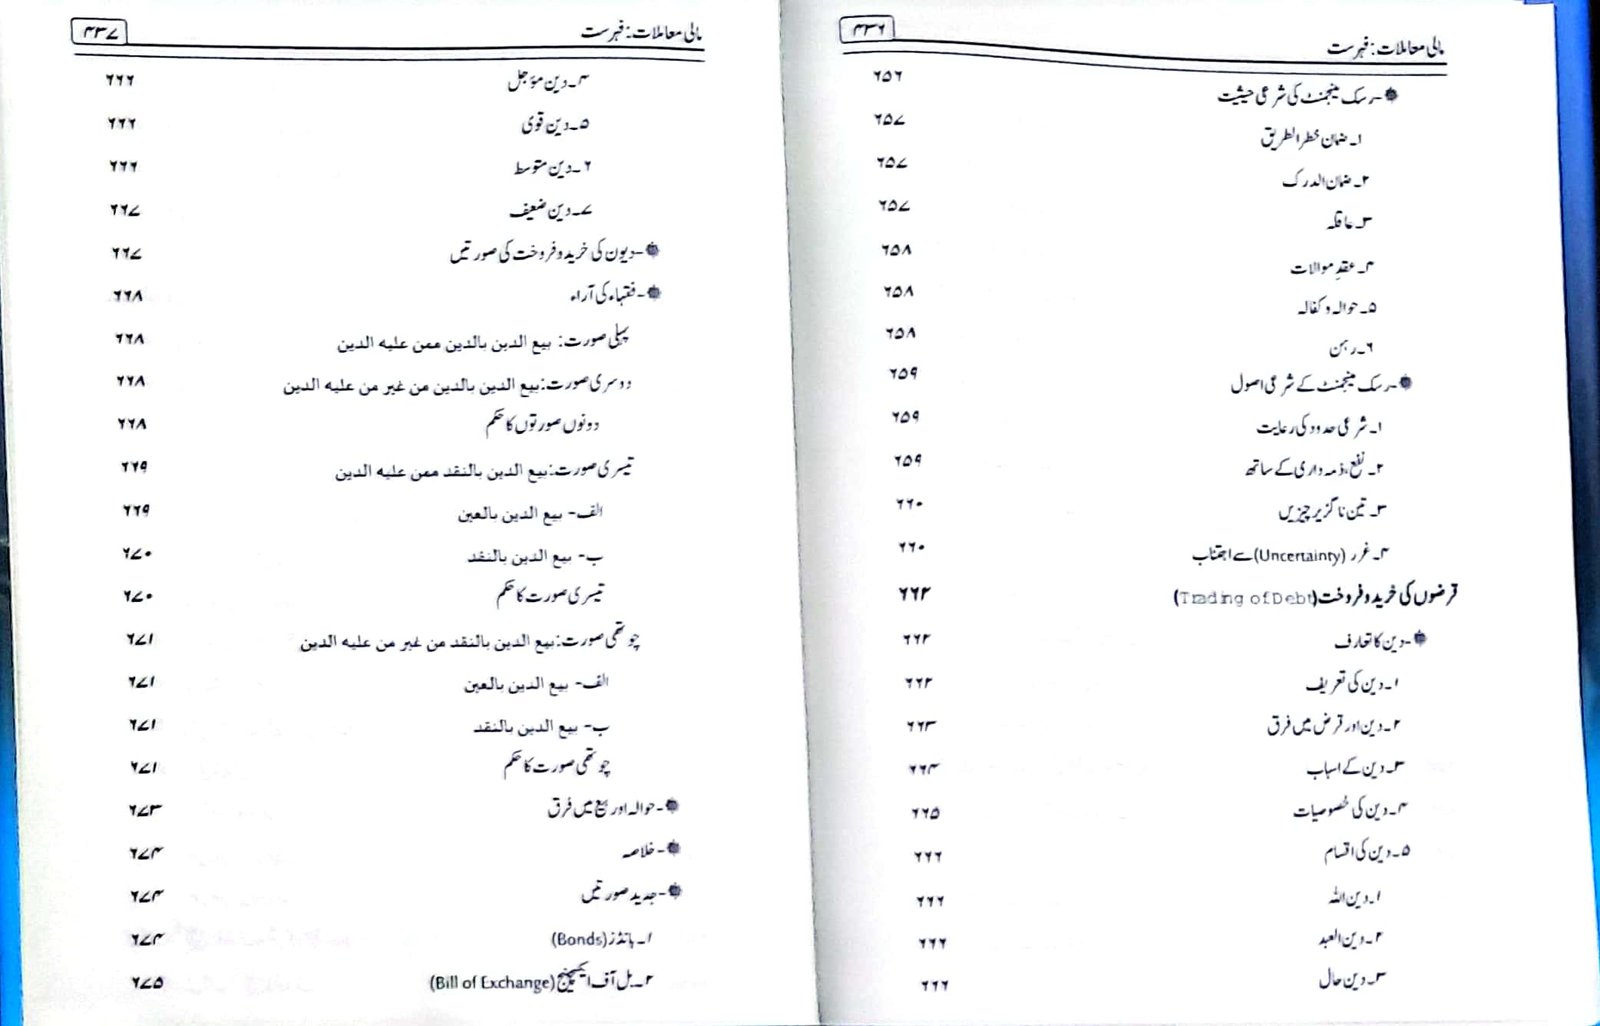 مالی معاملات: فہرست ۴۳۶
◉-رسک مینجمنٹ کی شرعی حیثیت ۶۵۶
۱۔ ضمان خطر الطریق ۶۵۷
۲۔ ضمان الدرک ۶۵۷
۳۔ عاقلہ ۶۵۷
۴۔ عقدِ موالات ۶۵۸
۵۔ حوالہ و کفالہ ۶۵۸
۶۔ رہن ۶۵۸
◉-رسک مینجمنٹ کے شرعی اصول ۶۵۹
۱۔ شرعی حدود کی رعایت ۶۵۹
۲۔ نفع، ذمہ داری کے ساتھ ۶۵۹
۳۔ تین ناگزیر چیزیں ۶۶۰
۴۔ غرر (Uncertainty) سے اجتناب ۶۶۰
قرضوں کی خرید و فروخت (Trading of Debt) ۶۶۲
◉-دین کا تعارف ۶۶۲
۱۔ دین کی تعریف ۶۶۲
۲۔ دین اور قرض میں فرق ۶۶۳
۳۔ دین کے اسباب ۶۶۴
۴۔ دین کی خصوصیات ۶۶۵
۵۔ دین کی اقسام ۶۶۶
۱۔ دین اللہ ۶۶۶
۲۔ دین العبد ۶۶۶
۳۔ دین حال ۶۶۶
مالی معاملات: فہرست ۴۳۷
۴۔ دین مؤجل ۶۶۶
۵۔ دین قوی ۶۶۶
۶۔ دین متوسط ۶۶۶
۷۔ دین ضعیف ۶۶۷
◉-دیون کی خرید و فروخت کی صورتیں ۶۶۷
◉-فقہاء کی آراء ۶۶۸
پہلی صورت: بیع الدین بالدین ممن علیه الدین ۶۶۸
دوسری صورت: بیع الدین بالدین من غیر من علیه الدین ۶۶۸
دونوں صورتوں کا حکم ۶۶۸
تیسری صورت: بیع الدین بالنقد ممن علیه الدین ۶۶۹
الف- بیع الدین بالعین ۶۶۹
ب- بیع الدین بالنقد ۶۷۰
تیسری صورت کا حکم ۶۷۰
چوتھی صورت: بیع الدین بالنقد من غیر من علیه الدین ۶۷۱
الف- بیع الدین بالعین ۶۷۱
ب- بیع الدین بالنقد ۶۷۱
چوتھی صورت کا حکم ۶۷۱
◉-حوالہ اور بیع میں فرق ۶۷۳
◉-خلاصہ ۶۷۴
◉-جدید صورتیں ۶۷۴
۱۔ بانڈز (Bonds) ۶۷۴
۲۔ بل آف ایکسچینج (Bill of Exchange) ۶۷۵